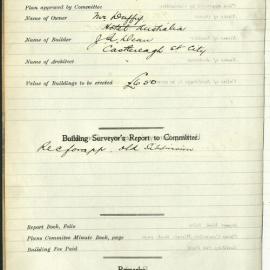 Plan approved by Committee
Name of Owner Mr Duffy
Hotel Australia
Name of Builder J A Dean
Castlereagh St City
Name of Architect
Value of Buildings to be erected £600
Building Surveyor's Report to Committee
Rec for app. old
Report Book, Folio
Plans Committee Minute Book, page
Building Fee Paid
Remarks